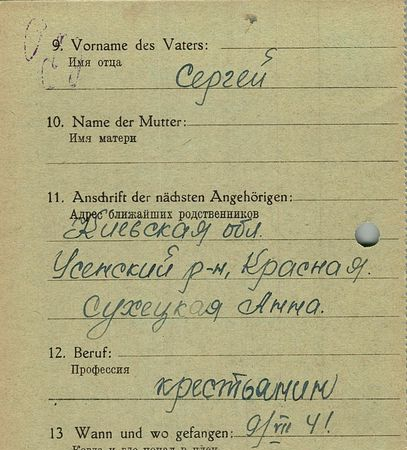 9. Vorname des Vaters:
Имя отца
Сергей
10. Name der Mutter:
Имя матери
11. Anschrift der nächsten Angehörigen:
Адрес ближайших родственников
Киевская обл.
Усенский р-н, Красная.
Сухецкая Анна.
12. Beruf:
Профессия
крестьянин
13 Wann und wo gefangen: 9/VII 41.
Когда и где попал в плен